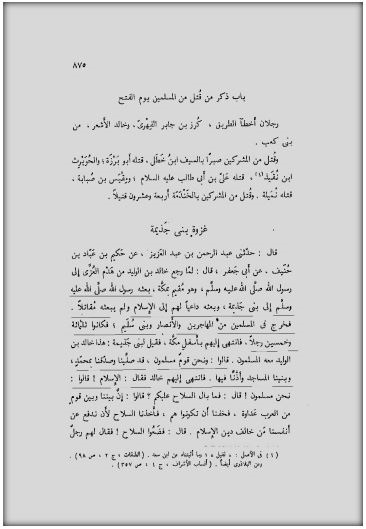 ٨٧٥
باب ذكر من قُتل من المسلمين يوم الفتح
رجلان أخطآ الطريق ، كُرز بن جابر الفِهْرىّ، وخالد الأشعر ، من
بنى كعب .
وقُتل من المشركين صبرًا بالسيف ابنُ خَطَل، قتله أبو بَرْزَة؛ والحُوَيْرِث
ابن نُقَيذ(١) ، قتله علىّ بن أبى طالب عليه السلام ؛ ومِقْيَس بن صُبابة ،
قتله نُمَيلة . وقُتل من المشركين بالخَنْدَمَة أربعة وعشرون قتيلاً .
غزوة بنى جَذِيمة
قال : حدّثنى عبد الرحمن بن عبد العزيز ، عن حَكيم بن عَبّاد بن
حُنَيف ، عن أبى جعفر ، قال : لمّا رجع خالد بن الوليد من هَدْم العُزَّى إلى
رسول الله صلَّى الله عليه وسلَّم ، وهو مقيم بمكَّة ، بعثه رسول الله صلَّى الله عليه
وسلَّم إلى بنى جَذيمة ، وبعثه داعياً لهم إلى الإسلام ولم يبعثه مُقاتلاً .
فخرج فى المسلمين من المهاجرين والأنصار وبنى سُلَيم ؛ فكانوا ثلثمائة
وخمسين رجلاً، فانتهى إليهم بأسفل مكَّة ، فقيل لبنى جَذيمة : هذا خالد بن
الوليد معه المسلمون . قالوا : ونحن قومٌ مسلمون ، قد صلَّينا وصدَّقنا بمحمّدٍ،
وبنينا المساجد وأذَّنَّا فيها . فانتهى إليهم خالد فقال : الإسلام ! قالوا :
نحن مسلمون ! قال : فما بال السلاح عليكم ؟ قالوا : إنَّ بيننا وبين قوم
من العرب عداوة ، فخفنا أن تكونوا هم ، فأخذنا السلاح لأن ندفع عن
أنفسنا مَن خالف دين الإسلام . قال : فضَعُوا السلاح ! فقال لهم رجلٌ
(١) فى الأصل : « نفيل » ؛ وما أثبتناه عن ابن سعد . (الطبقات ، ج ٢ ، ص ٩٨) .
وعن البلاذرى أيضاً . (أنساب الأشراف ، ج ١ ، ص ٣٥٧) .